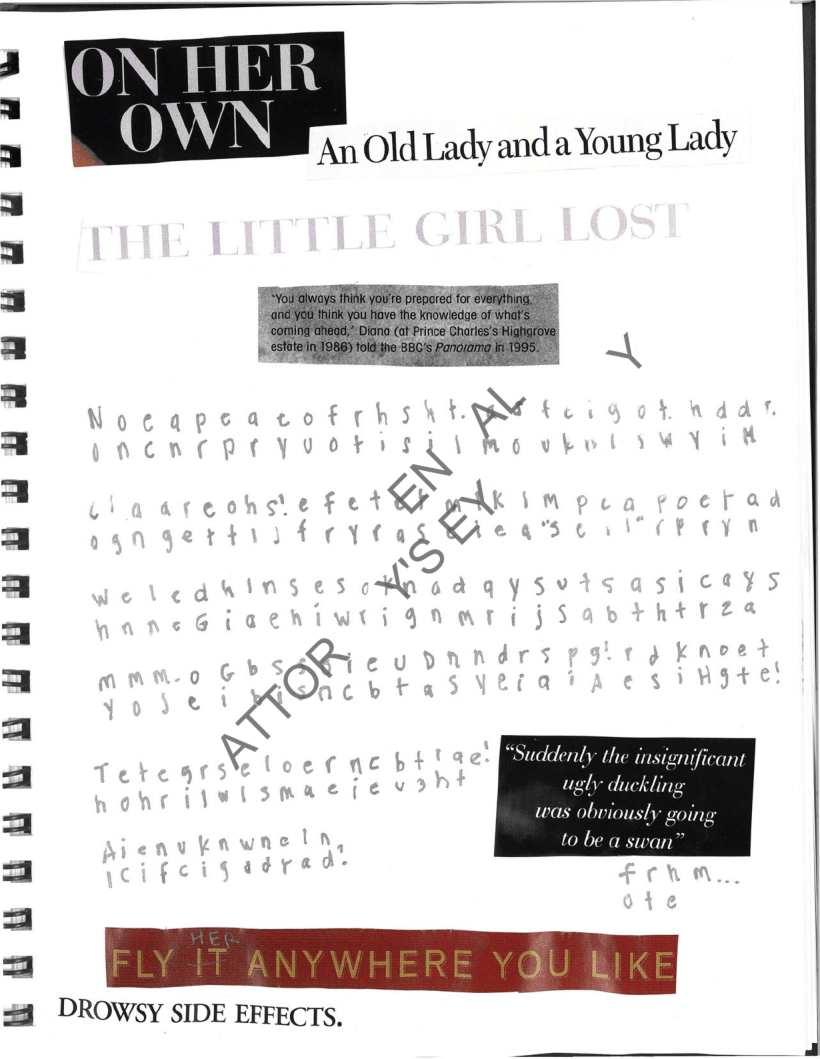 ON HER
OWN
An Old Lady and a Young Lady
THE LITTLE GIRL LOST
"You always think you're prepared for everything,
and you think you have the knowledge of what's
coming ahead," Diana (at Prince Charles's Highgrove
estate in 1986) told the BBC's Panorama in 1995.
N o e a p e a t o f r h s h t. t c i g o t. h d d r.
o n c n r p r y u o t i s i l m o u k n l s w y i M
o g n g e t t i j f r y r a s
w e l e d h I n s e s o t n a d q y s u t s a s i c a y s
h n n e G i a e h i w r i g n m r i j s a b t h t r z a
m m m - o G b s i e u D n n d r s p g! r d k n o e t
y o s e i s n c b t a s y e i a i A e s i H g t e!
T e t e g r s e l o e r n c b t r a e!
h o h r i l w l s m a e i e u s h t
A i e n v k n w n e l n,
l c i f c i g d d r a d.
"Suddenly the insignificant
ugly duckling
was obviously going
to be a swan"
f r h m...
o t e
HER
FLY IT ANYWHERE YOU LIKE
DROWSY SIDE EFFECTS.
ATTOR Y'S EY EN AL Y